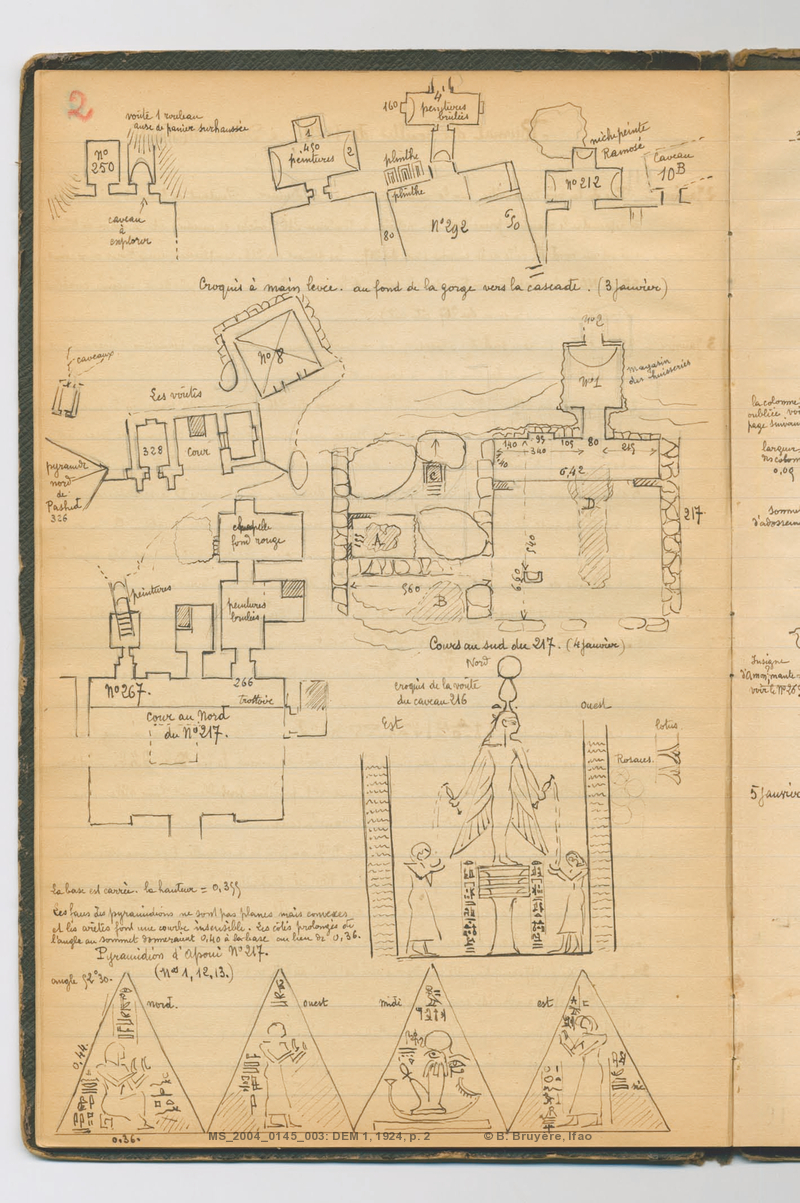 2
voûte 1 rouleau
anse de panier surhaussée
N°
250
caveau
à
explorer
1
450
peintures
2
160
4
peintures
brûlées
plinthe
plinthe
80
N° 292
niche peinte
Ramosé
N° 212
Caveau
10 B
Croquis à main levée. au fond de la gorge vers la cascade. (3 Janvier)
N° 8
caveaux
Les voûtes
328
Cour
pyramide
nord
de
Pashed
326
N° 2
N° 1
magasin
des huisseries
140
95
105
80
215
340
6,42
217
C
A
D
B
560
540
660
Cours au sud du 217. (4 janvier)
chapelle
fond rouge
peintures
brûlées
peintures
N° 267.
266
trottoir
Cour au Nord
du N° 217.
Nord
croquis de la voûte
du caveau 216
Est
ouest
lotus
Rosaces
La base est carrée. la hauteur = 0,355
Les faces des pyramidions ne sont pas planes mais convexes
et les arêtes font une courbe insensible. Les côtés prolongés où
l'angle au sommet donneraient 0,40 à la base au lieu de 0,36.
Pyramidion d'Apoui N° 217.
(Nos 1, 12, 13.)
angle 52°30.
nord.
ouest
midi
est
0.44.
0.36.
sic
la colonne
oubliée voir
page suivan
largeur
0,09
sommet
Insigne
d'Amon, mante
voir le N° 26
5 Janvier
MS_2004_0145_003: DEM 1, 1924, p. 2
© B. Bruyère, Ifao